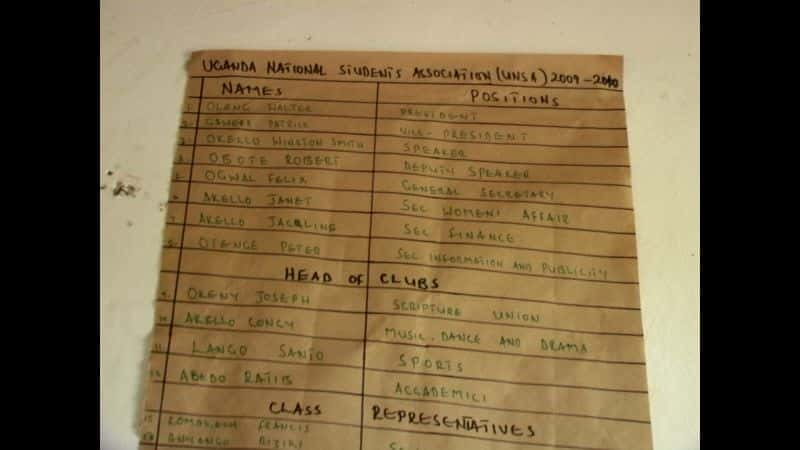 UGANDA NATIONAL STUDENTS ASSOCIATION (UNSA) 2009-2010
NAMES POSITIONS
1. OLANG WALTER PRESIDENT
2. PATRICK VICE-PRESIDENT
3. OKELLO WINSTON SMITH SPEAKER
4. OBOTE ROBERT DEPUTY SPEAKER
5. OGWAL FELIX GENERAL SECRETARY
6 AKELLO JANET SEC WOMENS AFFAIR
7. AKELLO JACQLINE SEC FINANCE
8. OTENGE PETER SEC INFORMATION AND PUBLICITY
HEAD OF CLUBS
9. OKENY JOSEPH SCRIPTURE UNION
10 AKELLO CONCY MUSIC, DANCE AND DRAMA
11. LANGO SANTO SPORTS
12 ABEDO ACCADEMICI
CLASS REPRESENTATIVES
13 FRANCIS
14